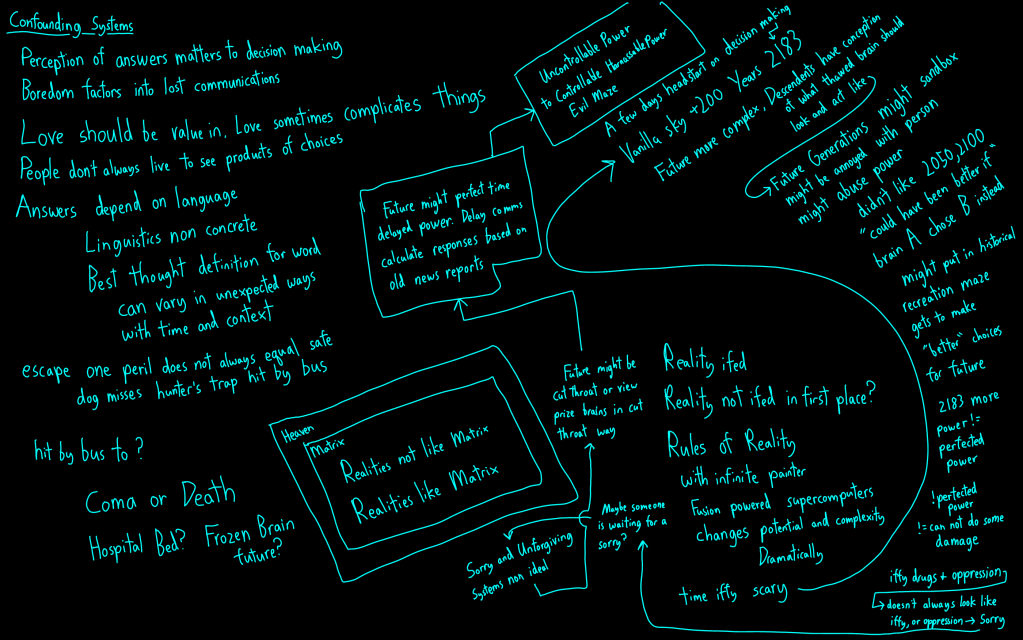 Confounding Systems
Perception of answers matters to decision making
Boredom factors into lost communications
Love should be value in. Love sometimes complicates things
People don't always live to see products of choices
Answers depend on language
Linguistics non concrete
Best thought definition for word
can vary in unexpected ways
with time and context
escape one peril does not always equal safe
dog misses hunter's trap hit by bus
hit by bus to ?
Coma or Death
Hospital Bed? Frozen Brain
future?
Heaven
Matrix
Realities not like Matrix
Realities like Matrix
Future might perfect time
delayed power. Delay comms
calculate responses based on
old news reports
Uncontrollable Power
to Controllable Harnassable Power
Evil Maze
A few days headstart on decision making
Vanilla sky +200 Years 2183
Future more complex, Descendents have conception
of what thawed brain should
look and act like
Future Generations might sandbox
might be annoyed with person
might abuse power
didn't like 2050, 2100
"could have been better if"
brain A chose B instead
might put in historical
recreation maze
gets to make
"better" choices
for future
2183 more
power !=
perfected
power
!perfected
power
!= can not do some
damage
Future might be
cut throat or view
prize brains in cut
throat way
Reality ifed
Reality not ifed in first place?
Rules of Reality
with infinite painter
Fusion powered supercomputers
changes potential and complexity
Dramatically
time iffy scary
Maybe someone
is waiting for a
sorry?
Sorry and Unforgiving
Systems non ideal
iffy drugs + oppression
doesn't always look like
iffy, or oppression → Sorry